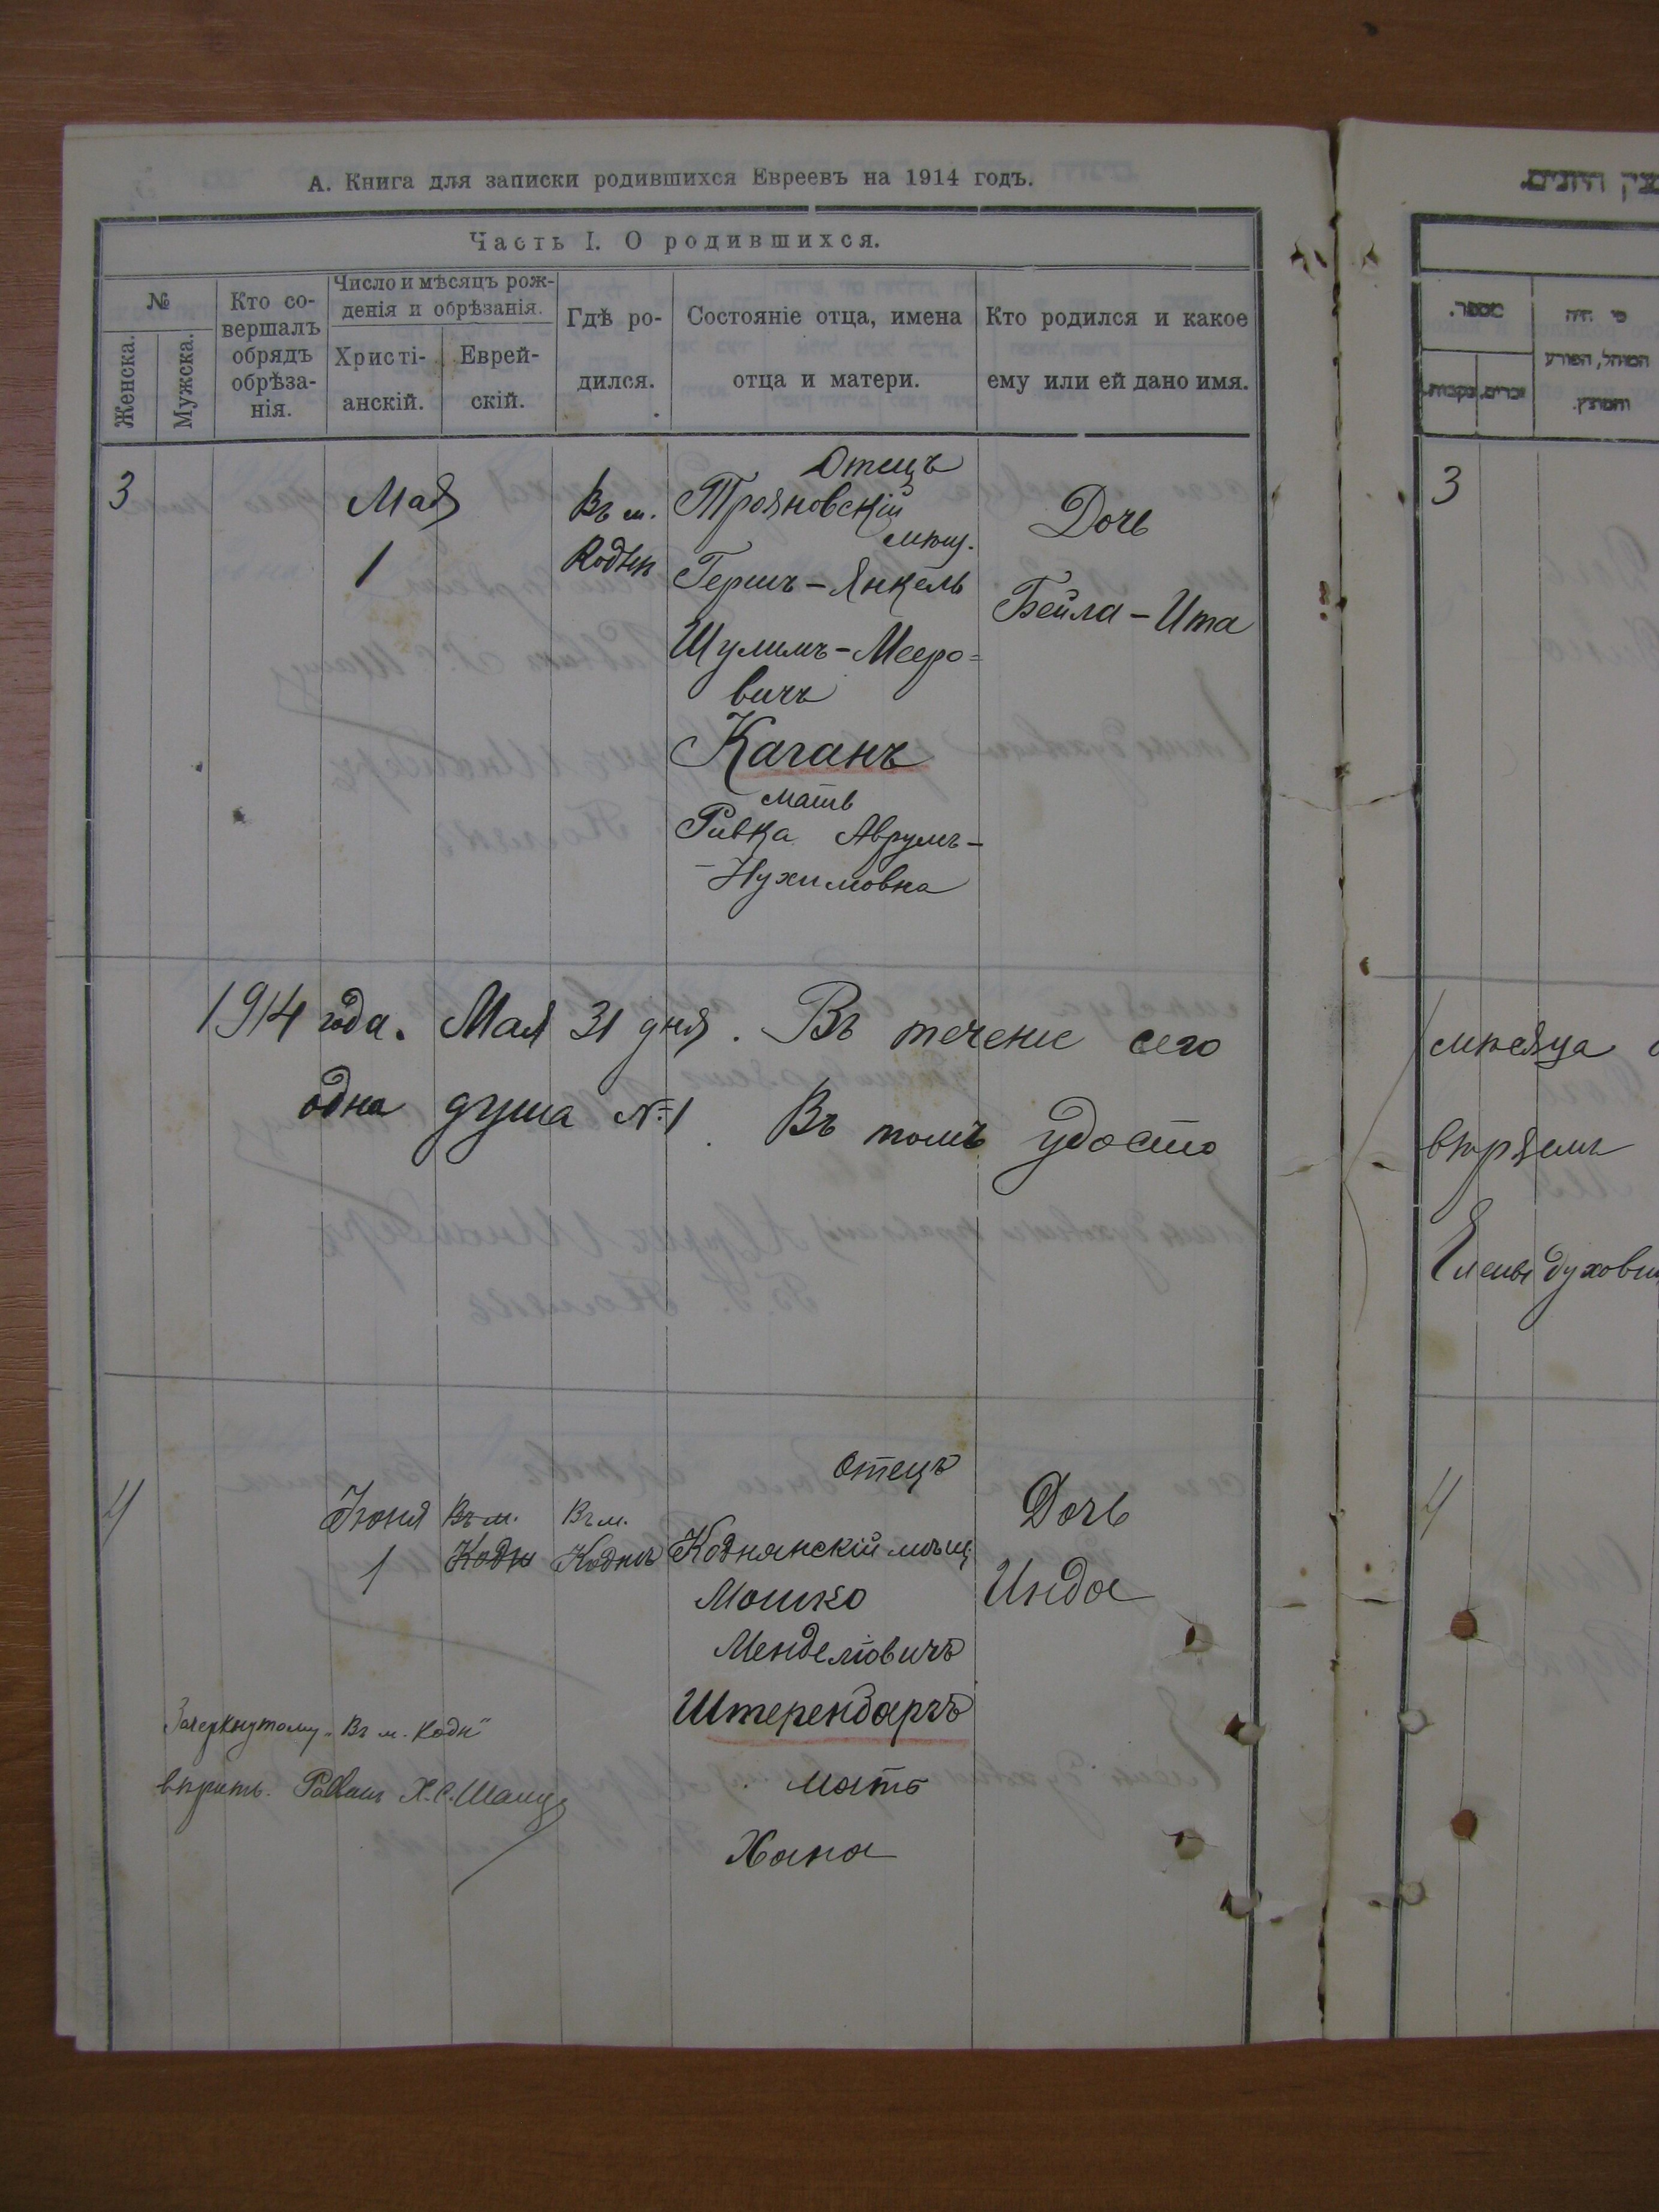 А. Книга для записки родившихся Евреевъ на 1914 годъ.
Часть I. О родившихся.
№
Женска.
Мужска.
Кто со-
вершалъ
обрядъ
обрѣза-
нія.
Число и мѣсяцъ рож-
денія и обрѣзанія.
Христі-
анскій.
Еврей-
скій.
Гдѣ ро-
дился.
Состояніе отца, имена
отца и матери.
Кто родился и какое
ему или ей дано имя.
3
Мая
1
Въ м.
Коднѣ
Отецъ
Трояновскій
мѣщ.
Гершъ-Янкель
Шулимъ-Мееро=
вичъ
Каганъ
мать
Ривка Аврумъ-
-Нухимовна
Дочь
Бейла-Ита
1914 года. Мая 31 дня. Въ течение сего
одна душа №1. Въ томъ удосто
4
Іюня
1
Въ м.
Кодн
Въ м.
Коднѣ
Отецъ
Коднянскій мѣщ.
Мошко
Менделіовичъ
Штерендаръ
мать
Хана
Дочь
Инда
Зачеркнутому „Въ м. Кодн"
вѣрить. Раввинъ Х. С. Шацъ
מספר.
זכרים.
נקבות.
מי היה
המוהל, הפורע
והמוצץ.
3
мѣсяца
вѣряемъ
Члены духовн
4